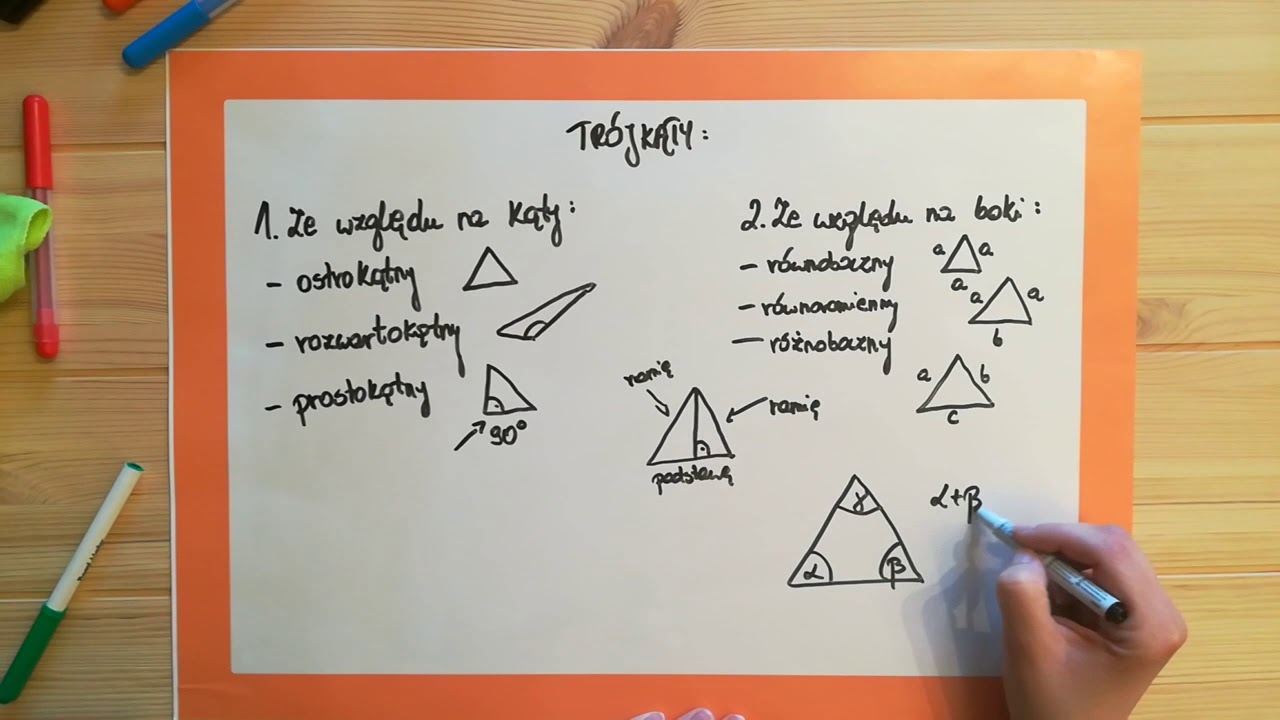 TRÓJKĄTY:
1. Ze względu na kąty:
- ostrokątny
- rozwartokątny
- prostokątny
90°
2. Ze względu na boki:
- równoboczny
a a
a
- równoramienny
a a
b
- różnoboczny
a b
c
ramię
ramię
podstawą
γ
α β
α+β